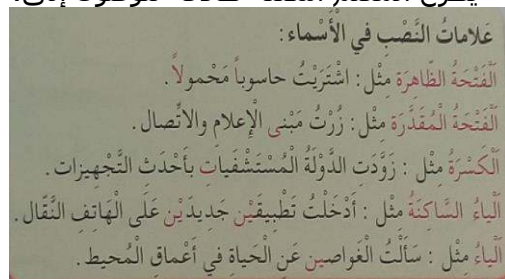 عَلاماتُ النَّصْبِ في الْأَسْماء :
اَلْفَتْحَةُ الظّاهِرَة مِثْل : اشْتَرَيْتُ حاسوباً مَحْمولاً .
اَلْفَتْحَةُ الْمُقَدَّرَة مِثْل : زُرْتُ مَبْنى الْإعلام والاتِّصال .
اَلْكَسْرَةُ مِثْل : زَوَّدَت الدَّوْلَةُ الْمُسْتَشْفَيات بأَحْدَث التَّجْهيزات .
اَلْياءُ السَّاكنَةُ مِثْل : أَدْخَلْتُ تَطْبيقَيْن جَديدَيْن عَلَى الْهَاتف النَّقَّال .
اَلْياءُ مِثْل : سَأَلْتُ الْغَواصين عَن الْحَياة في أَعْماق الْمُحيط .